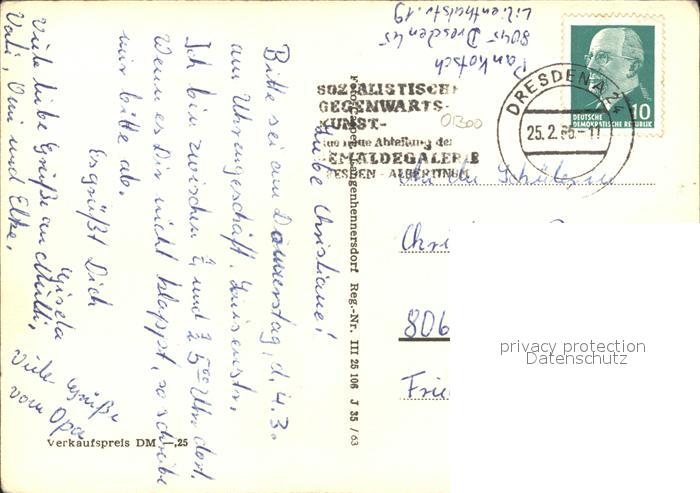 Liebe Christiane!
Bitte sei am Donnerstag, d. 4.3.
am Uhrengeschäft, Luisenstr.
Ich bin zwischen ½ und ¾ 5 00 Uhr dort.
Wenn es Dir nicht klappt, so schreibe
mir bitte ab.
Es grüßt Dich
Gisela
Viele liebe Grüße an Mutti,
Vati, Omi und Elke.
Viele Grüße
vom Opa
Verkaufspreis DM –,25
Langenhennersdorf Reg.-Nr. III 25 106 J 35/63
Pankotsch
8045 Dresden 45
Lilienthalstr. 19
SOZIALISTISCHE
GEGENWARTS-
KUNST-
neue Abteilung der
GEMÄLDEGALERIE
DRESDEN - ALBERTINUM
01300
DRESDEN A 24
25.2.65-11
10
DEUTSCHE
DEMOKRATISCHE REPUBLIK
An die Schülerin
Chri
806
Frie
privacy protection
Datenschutz